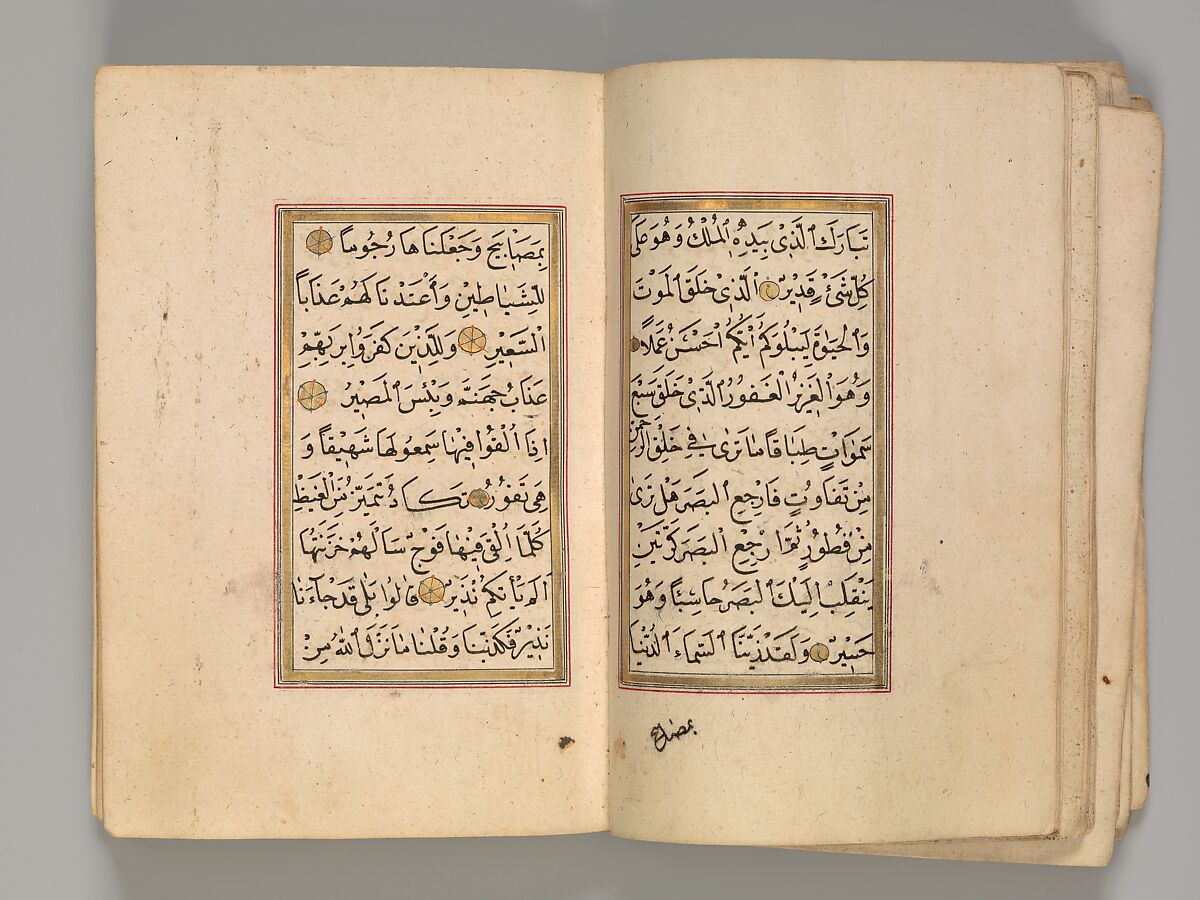 تَبَارَكَ ٱلَّذِى بِيَدِهِ ٱلْمُلْكُ وَهُوَ عَلَى
كُلِّ شَئٍ قَدِيرٌ ٱلَّذِى خَلَقَ ٱلْمَوْتَ
وَٱلْحَيٰوةَ لِيَبْلُوَكُمْ أَيُّكُمْ أَحْسَنُ عَمَلاً
وَهُوَ ٱلْعَزِيزُ ٱلْغَفُورُ ٱلَّذِى خَلَقَ سَبْعَ
سَمٰوَاتٍ طِبَاقًا مَا تَرٰى فِى خَلْقِ ٱلرَّحْمٰنِ
مِنْ تَفَاوُتٍ فَارْجِعِ ٱلْبَصَرَ هَلْ تَرٰى
مِنْ فُطُورٍ ثُمَّ ارْجِعِ ٱلْبَصَرَ كَرَّتَيْنِ
يَنْقَلِبْ اِلَيْكَ ٱلْبَصَرُ خَاسِئًا وَهُوَ
حَسِيرٌ وَلَقَدْ زَيَّنَّا ٱلسَّمَاءَ ٱلدُّنْيَا
بمصابيح
بِمَصَابِيحَ وَجَعَلْنَاهَا رُجُومًا
لِلشَّيَاطِينِ وَأَعْتَدْنَا لَهُمْ عَذَابَ
ٱلسَّعِيرِ وَلِلَّذِينَ كَفَرُوا بِرَبِّهِمْ
عَذَابُ جَهَنَّمَ وَبِئْسَ ٱلْمَصِيرُ
اِذَا اُلْقُوا فِيهَا سَمِعُوا لَهَا شَهِيقًا وَ
هِىَ تَفُورُ تَكَادُ تَمَيَّزُ مِنَ ٱلْغَيْظِ
كُلَّمَا اُلْقِىَ فِيهَا فَوْجٌ سَاَلَهُمْ خَزَنَتُهَا
اَلَمْ يَأْتِكُمْ نَذِيرٌ قَالُوا بَلٰى قَدْ جَاءَنَا
نَذِيرٌ فَكَذَّبْنَا وَقُلْنَا مَا نَزَّلَ ٱللّٰهُ مِنْ